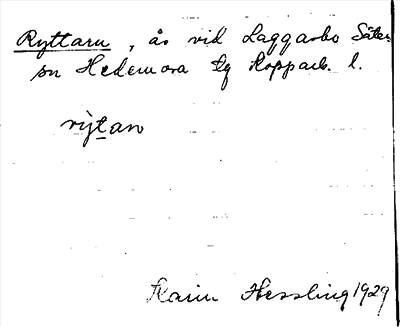 Ryttarn, ås vid Laggarbo Säter
sn Hedemora tg Kopparb. l.
rytan
Karin Hessling 1929